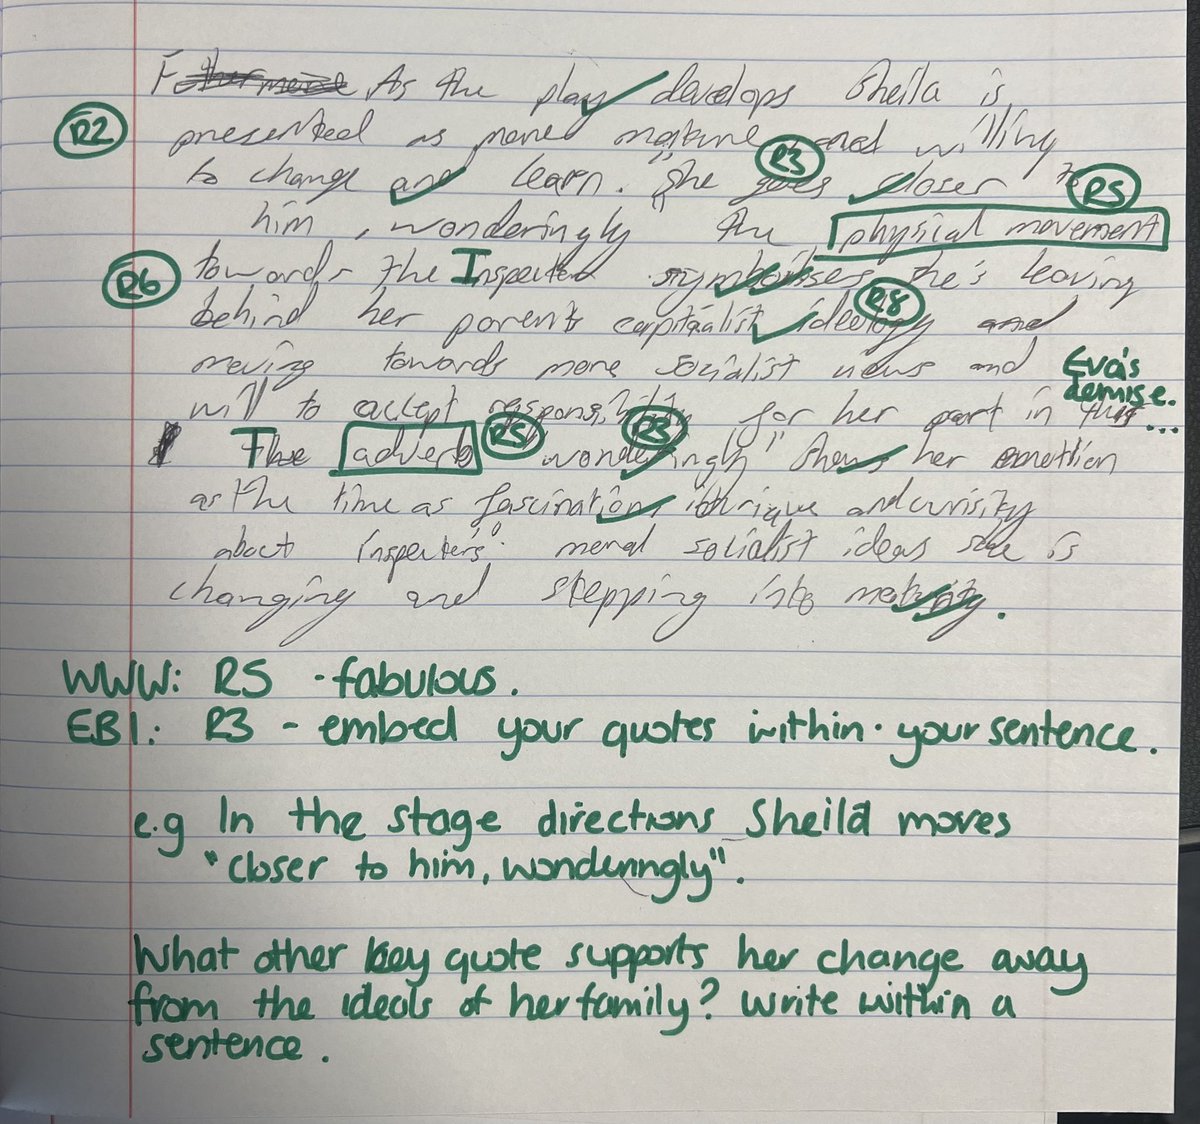 As the play develops Sheila is
R2 presented as more mature and willing
R3
to change and learn. "She goes closer to
R5
him, wonderingly" the physical movement
R6 towards the Inspector symbolises she's leaving
R8
behind her parents capitalist ideology and
moving towards more socialist views and
Eva's demise.
will to accept responsibility for her part in this...
The adverb R5 R3 "wonderingly" shows her emotion
as the time as fascination, intrique and curisity
about inspecter's moral socialist ideas she is
changing and stepping into maturity.
WWW: R5 - fabulous.
EBI: R3 - embed your quotes within your sentence.
e.g In the stage directions Sheila moves
"closer to him, wonderingly".
What other key quote supports her change away
from the ideals of her family? Write within a
sentence.